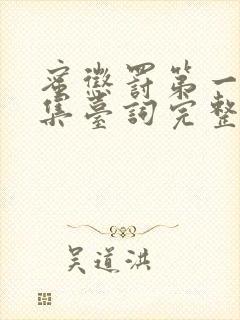 蜜懲罰第一
集臺詞完整
吴道洪